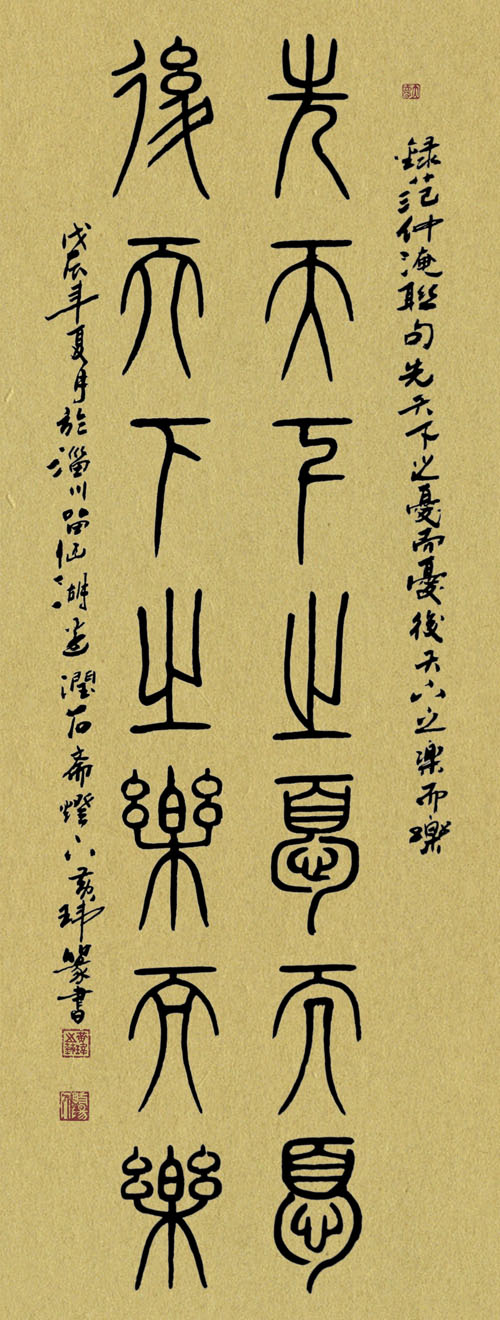 録范仲淹聯句先天下之憂而憂後天下之樂而樂
先天下之憂而憂
後天下之樂而樂
戊辰年夏月於淄川留仙湖潤石齋燈下黄玮篆書